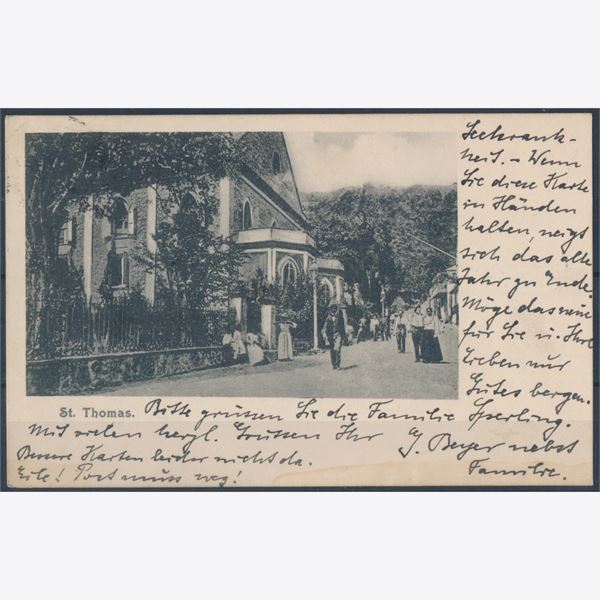 Seekrank-
heit. – Wenn
Sie diese Karte
in Händen
halten, neigt
sich das alte
Jahr zu Ende.
Möge das neue
für Sie u. Ihre
Lieben nur
Gutes bergen.
St. Thomas. Bitte grüssen Sie die Familie Sperling.
Mit vielen herzl. Grüssen Ihr G. Beyer nebst
Familie.
Bessere Karten leider nicht da.
Eile! Post muss weg!